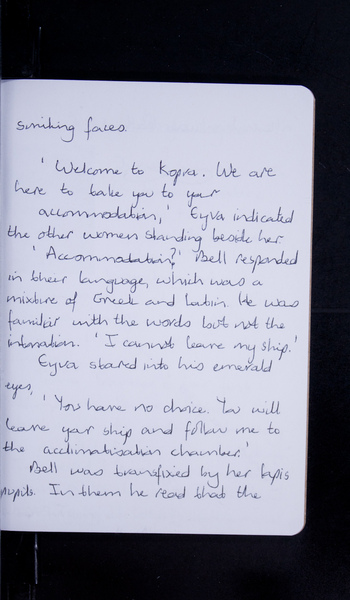 smiling faces.
' Welcome to Kopra. We are
here to take you to your
accommodation,' Eyva indicated
the other women standing beside her.
' Accommodation?' Bell responded
in their language, which was a
mixture of Greek and Latin. He was
familiar with the words but not the
intonation. ' I cannot leave my ship.'
Eyva stared into his emerald
eyes.
' You have no choice. You will
leave your ship and follow me to
the acclimatisation chamber.'
Bell was transfixed by her lapis
pupils. In them he read that the